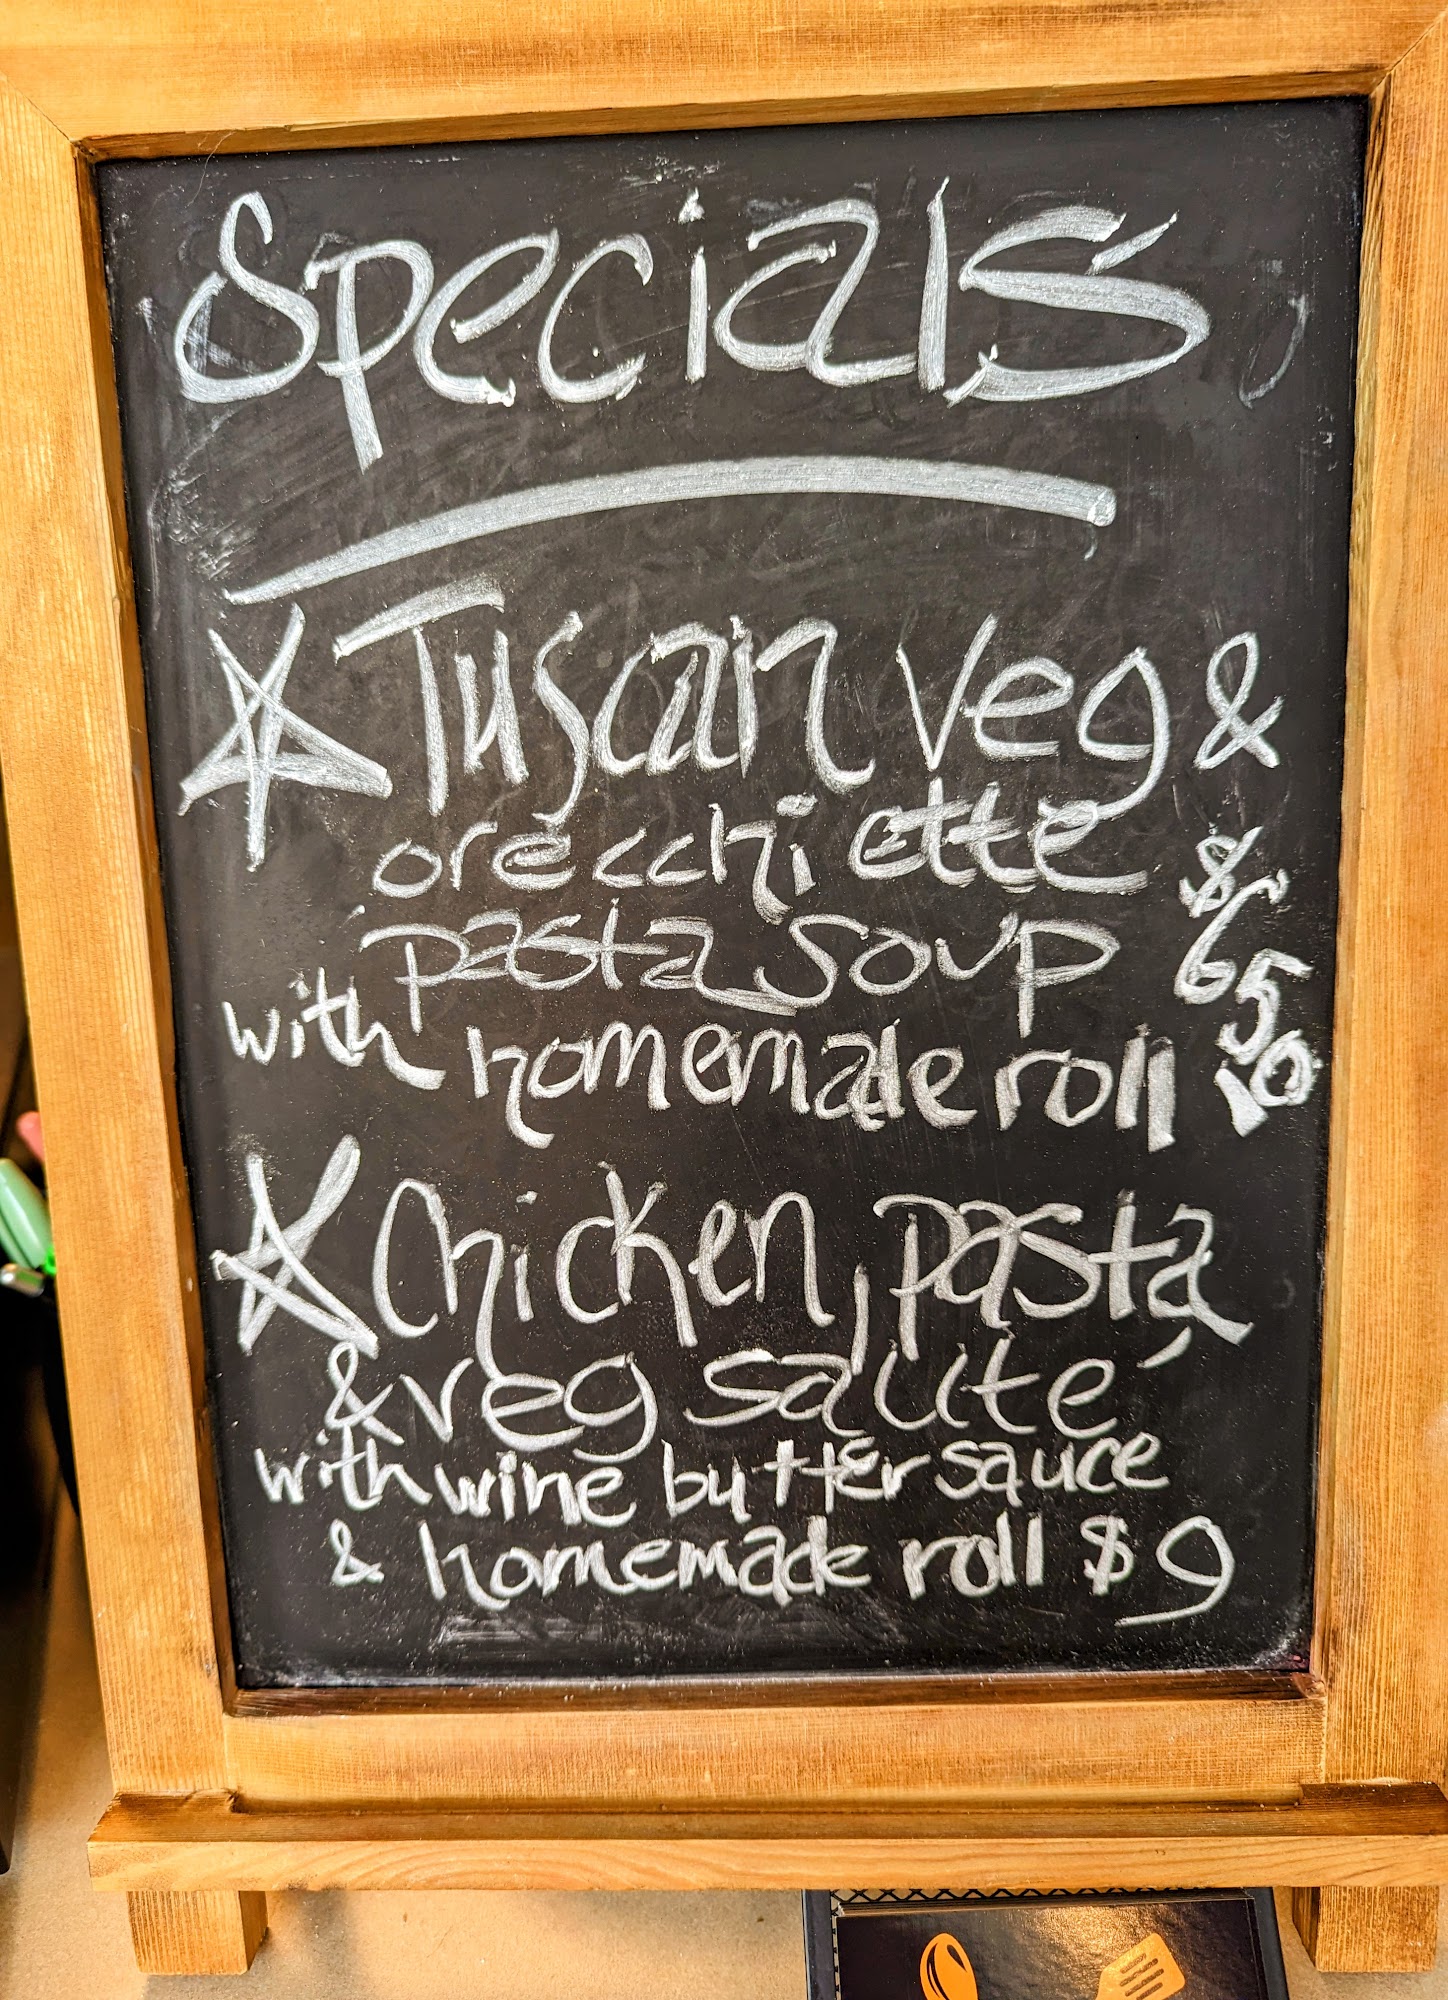 Specials
Tuscan veg &
orecchiette
pasta soup
with homemade roll
$6 50
Chicken, pasta
& veg sauté
with wine butter sauce
& homemade roll $9